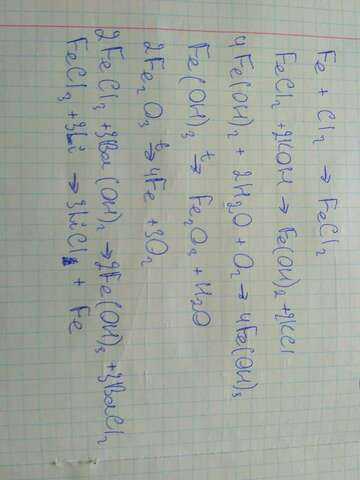 Fe + Cl₂ → FeCl₂
FeCl₂ + 2KOH → Fe(OH)₂ + 2KCl
4Fe(OH)₂ + 2H₂O + O₂ → 4Fe(OH)₃
Fe(OH)₃ t→ Fe₂O₃ + H₂O
2Fe₂O₃ t→ 4Fe + 3O₂
2FeCl₃ + 3Ba(OH)₂ → 2Fe(OH)₃ + 3BaCl₂
FeCl₃ + 3Li → 3LiCl + Fe